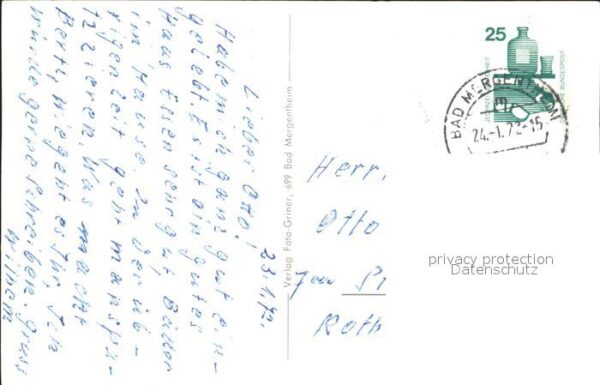 23.1.72.
Lieber Otto!
Habe mich ganz gut ein-
gelebt. Es ist ein gutes
Haus Essen sehr gut Bäder
im Hause. In der üb-
rigen Zeit geht man spa-
tzieren. Was macht
Berth, wie geht es Ihr, Ich
würde gerne schreiben. Gruss
Verlag Foto-Griner, 699 Bad Mergentheim
25
JEDERZEIT SICHERHEIT
DEUTSCHE BUNDESPOST
BAD MERGENTHEIM
24.-1.72-15
Herr,
Otto
Roth
privacy protection
Datenschutz